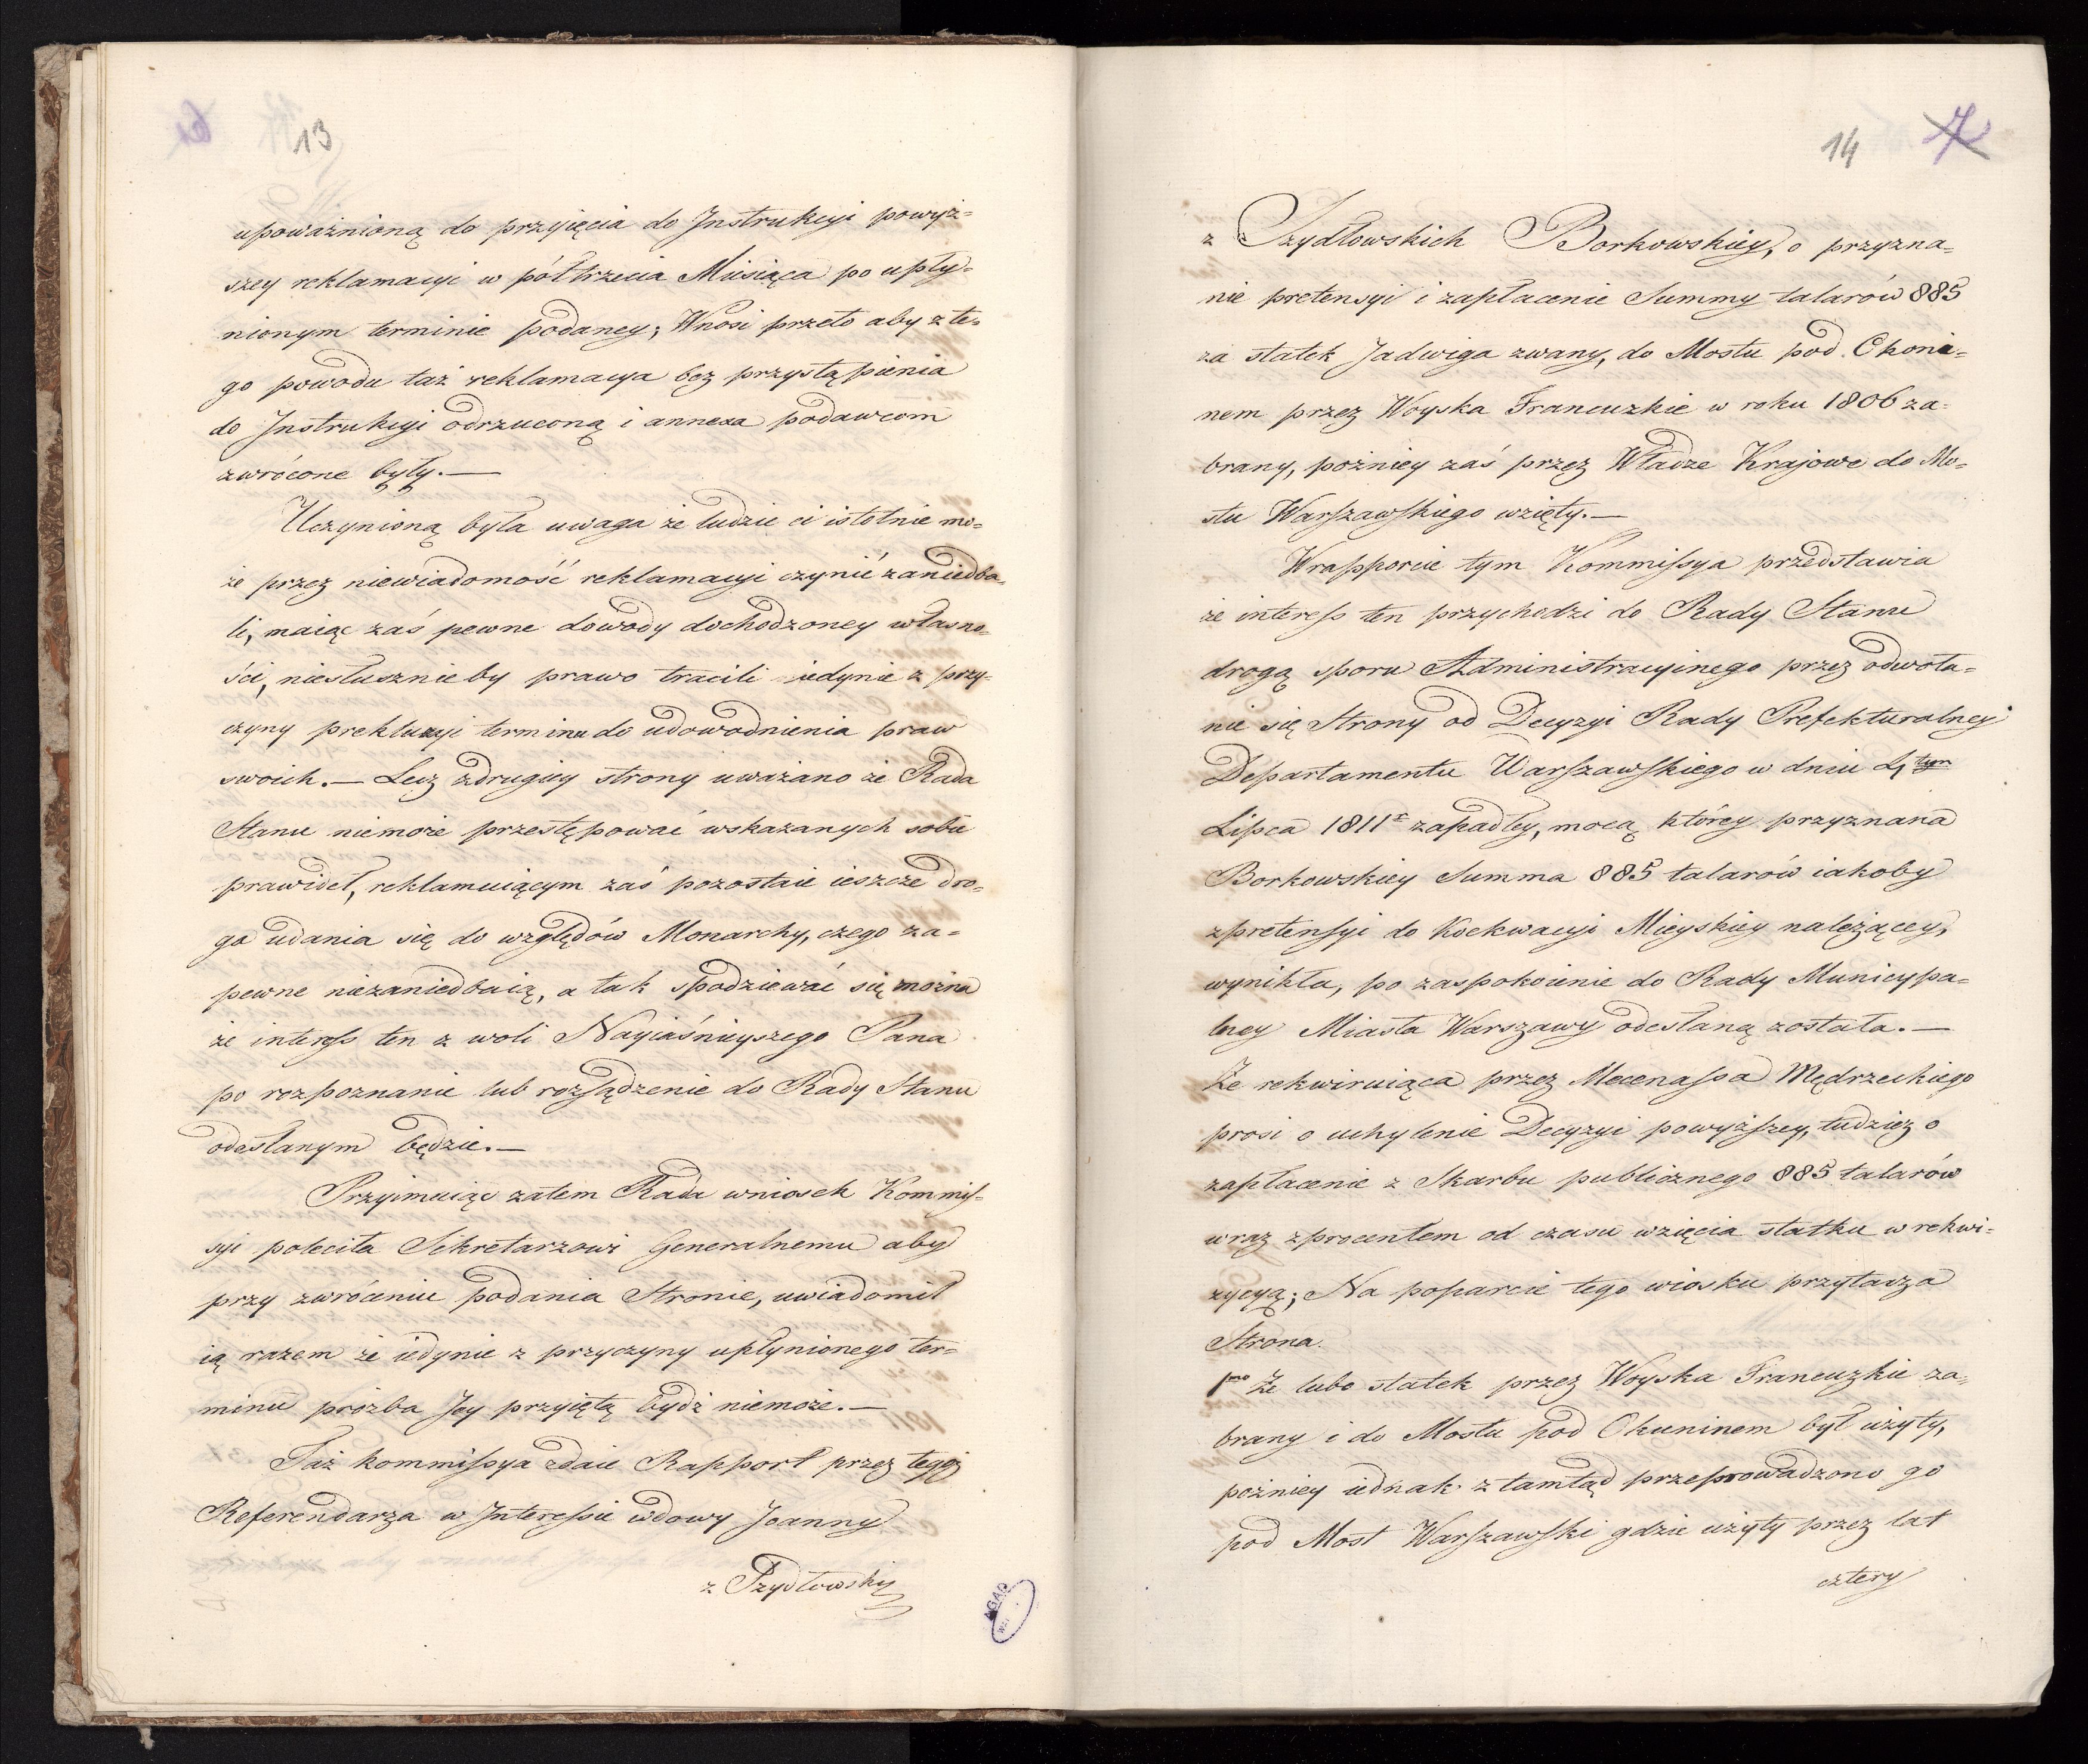 13
upoważnioną do przyięcia do Instrukcyi powyż=
szey reklamacyi w półtrzecia Miesiąca po upły=
nionym terminie podaney; Wnosi przeto aby z te=
go powodu taż reklamacya bez przystąpienia
do Instrukcyi odrzuconą i annexa podawcom
zwrócone były.—
Uczynioną była uwaga że ludzie ci istotnie mo=
że przez niewiadomość reklamacyi czynić zaniedba=
li, maiąc zaś pewne dowody dochodzoney własno=
ści, niesłusznieby prawo tracili iedynie z przy=
czyny prekluzyi terminu do udowodnienia praw
swoich.— Lecz zdrugiey strony uważano że Rada
Stanu niemoże przestępować wskazanych sobie
prawideł, reklamuiącym zaś pozostaie ieszcze dro=
ga udania się do względów Monarchy, czego za=
pewne niezaniedbaią, a tak spodziewać się można
że interess ten z woli Nayiaśnieyszego Pana
po rozpoznanie lub rozsądzenie do Rady Stanu
odesłanym będzie.—
Przyimuiąc zatem Rada wniosek Kommis=
syi poleciła Sekretarzowi Generalnemu aby
przy zwróceniu podania Stronie, uwiadomił
ią razem że iedynie z przyczyny upłynionego ter=
minu prozba Jey przyiętą bydź niemoże.—
Taż kommissya zdaie Rapport przez tegoż
Referendarza w Interessie wdowy Joanny
z Szydłowskich
14 7
z Szydłowskich Borkowskiey, o przyzna=
nie pretensyi i zapłacenie Summy talarów 885
za statek Jadwiga zwany, do Mostu pod Okoni=
nem przez Woyska Francuzkie w roku 1806 za=
brany, poźniey zaś przez Władze Krajowe do Mo=
stu Warszawskiego wzięty.—
W rapporcie tym Kommissya przedstawia
że interess ten przychodzi do Rady Stanu
drogą sporu Administracyinego przez odwoła=
nie się Strony od Decyzyi Rady Prefekturalney
Departamentu Warszawskiego w dniu 4tym
Lipca 1811 r zapadłey, mocą którey przyznana
Borkowskiey Summa 885 talarów iakoby
z pretensyi do Koekwacyi Mieyskiey należącey,
wynikła, po zaspokoienie do Rady Municypa=
lney Miasta Warszawy odesłaną została.—
Że rekwiruiąca przez Mecenassa Mędrzeckiego
prosi o uchylenie Decyzyi powyższey, tudzież o
zapłacenie z Skarbu publicznego 885 talarów
wraz z procentem od czasu wzięcia statku w rekwi=
zycyą; Na poparcie tego wiosku przytacza
Strona.
1mo Że lubo statek przez Woyska Francuzkie za=
brany i do Mostu pod Okuninem był użyty,
poźniey iednak z tamtąd przeprowadzono go
pod Most Warszawski gdzie użyty przez lat
cztery
AGAD